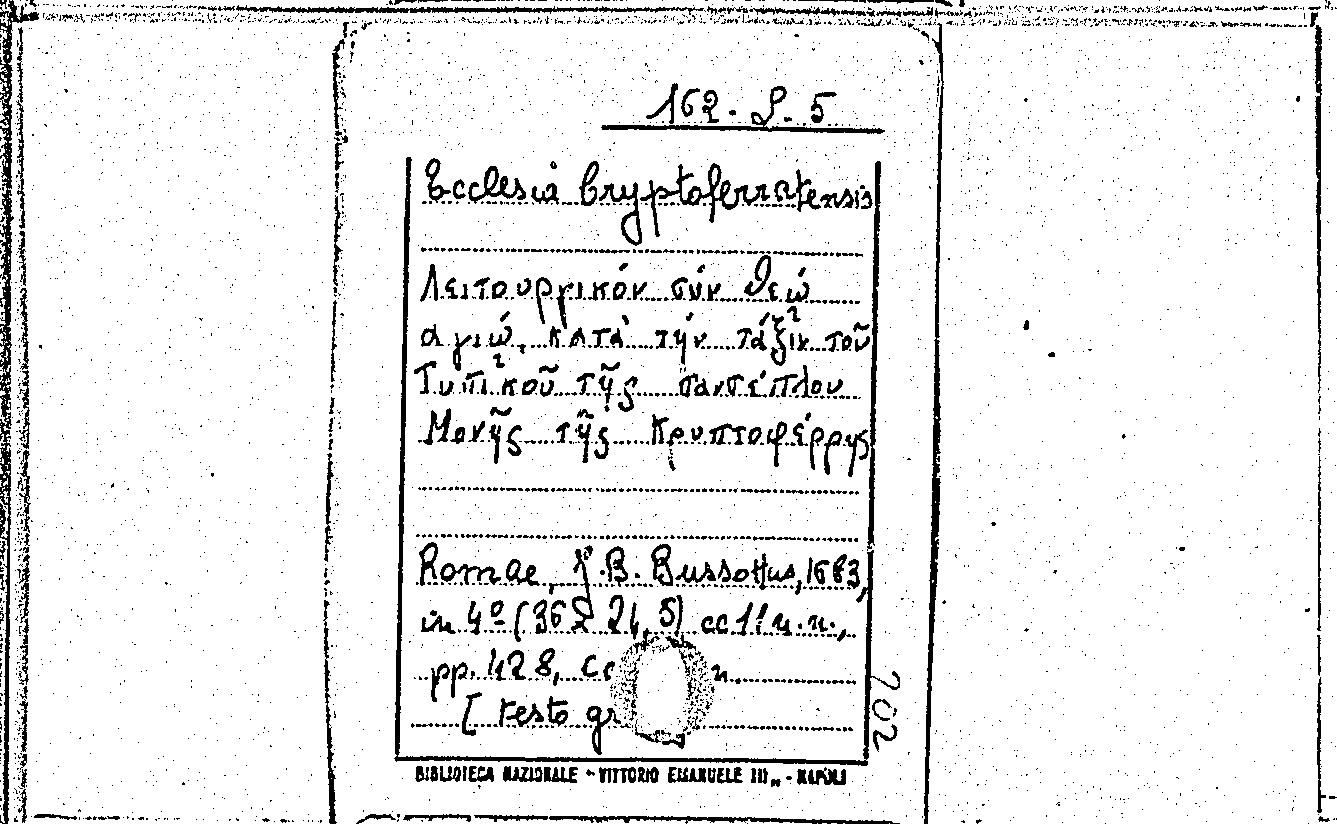 162. L. 5
Ecclesia Cryptoferratensis
Λειτουργικόν σύν θεώ
αγιώ, κατά τήν τάξιν τοῦ
Τυπικοῦ τῆς πανσέπλου
Μονῆς τῆς Κρυπτοφέρρης
Romae, J.B. Bussottus, 1683,
in 4º (36 x 24,5) cc 11 n.n.,
pp. 428, cc n.
[testo gr
202
BIBLIOTECA NAZIONALE - VITTORIO EMANUELE III„ - NAPOLI